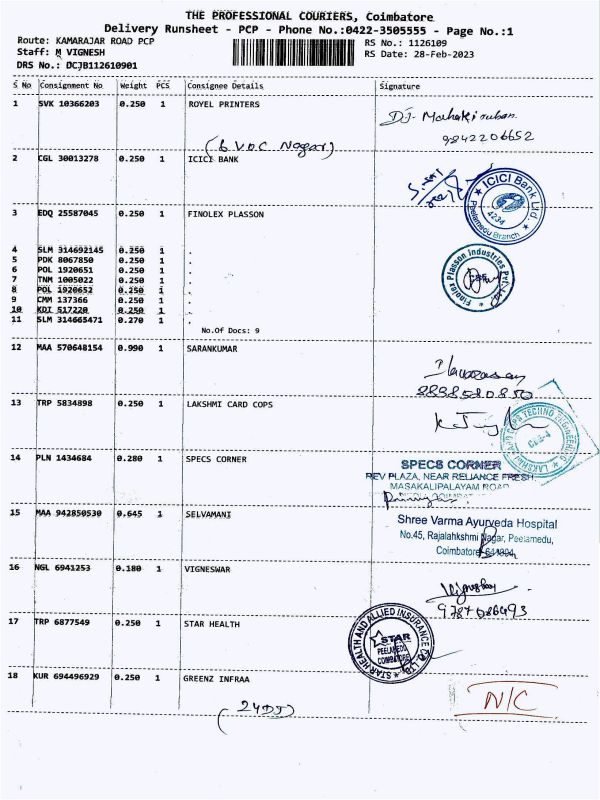 THE PROFESSIONAL COURIERS, Coimbatore
Delivery Runsheet - PCP - Phone No.:0422-3505555 - Page No.:1
Route: KAMARAJAR ROAD PCP
RS No.: 1126109
Staff: M VIGNESH
RS Date: 28-Feb-2023
DRS No.: DCJB112610901
S No Consignment No Weight PCS Consignee Details Signature
1 SVK 10366203 0.250 1 ROYEL PRINTERS
9842206652
(6 VOC Nagar)
2 CGL 30013278 0.250 1 ICICI BANK
ICICI Bank Ltd.
4234
Peelamedu Branch
3 EDQ 25587045 0.250 1 FINOLEX PLASSON
4 SLM 314692145 0.250 1 .
5 PDK 8067850 0.250 1 .
6 POL 1920651 0.250 1 .
7 TNM 1005022 0.250 1 .
8 POL 1920652 0.250 1 .
9 CMM 137366 0.250 1 .
10 KDI 517220 0.250 1 .
11 SLM 314665471 0.270 1 .
No.Of Docs: 9
Finolex Plasson Industries Pvt. Ltd.
12 MAA 570648154 0.990 1 SARANKUMAR
13 TRP 5834898 0.250 1 LAKSHMI CARD COPS
LAKSHMI CARD COPS TECHNO ENGINEERING
CBE-4
14 PLN 1434684 0.280 1 SPECS CORNER
SPECS CORNER
REV PLAZA, NEAR RELIANCE FRESH
MASAKALIPALAYAM ROAD
15 MAA 942850530 0.645 1 SELVAMANI
Shree Varma Ayurveda Hospital
No.45, Rajalahkshmi Nagar, Peelamedu,
Coimbatore-641004
16 NGL 6941253 0.180 1 VIGNESWAR
17 TRP 6877549 0.250 1 STAR HEALTH
STAR HEALTH AND ALLIED INSURANCE CO. LTD.
STAR
PEELAMEDU
COIMBATORE
18 KUR 694496929 0.250 1 GREENZ INFRAA
N/C